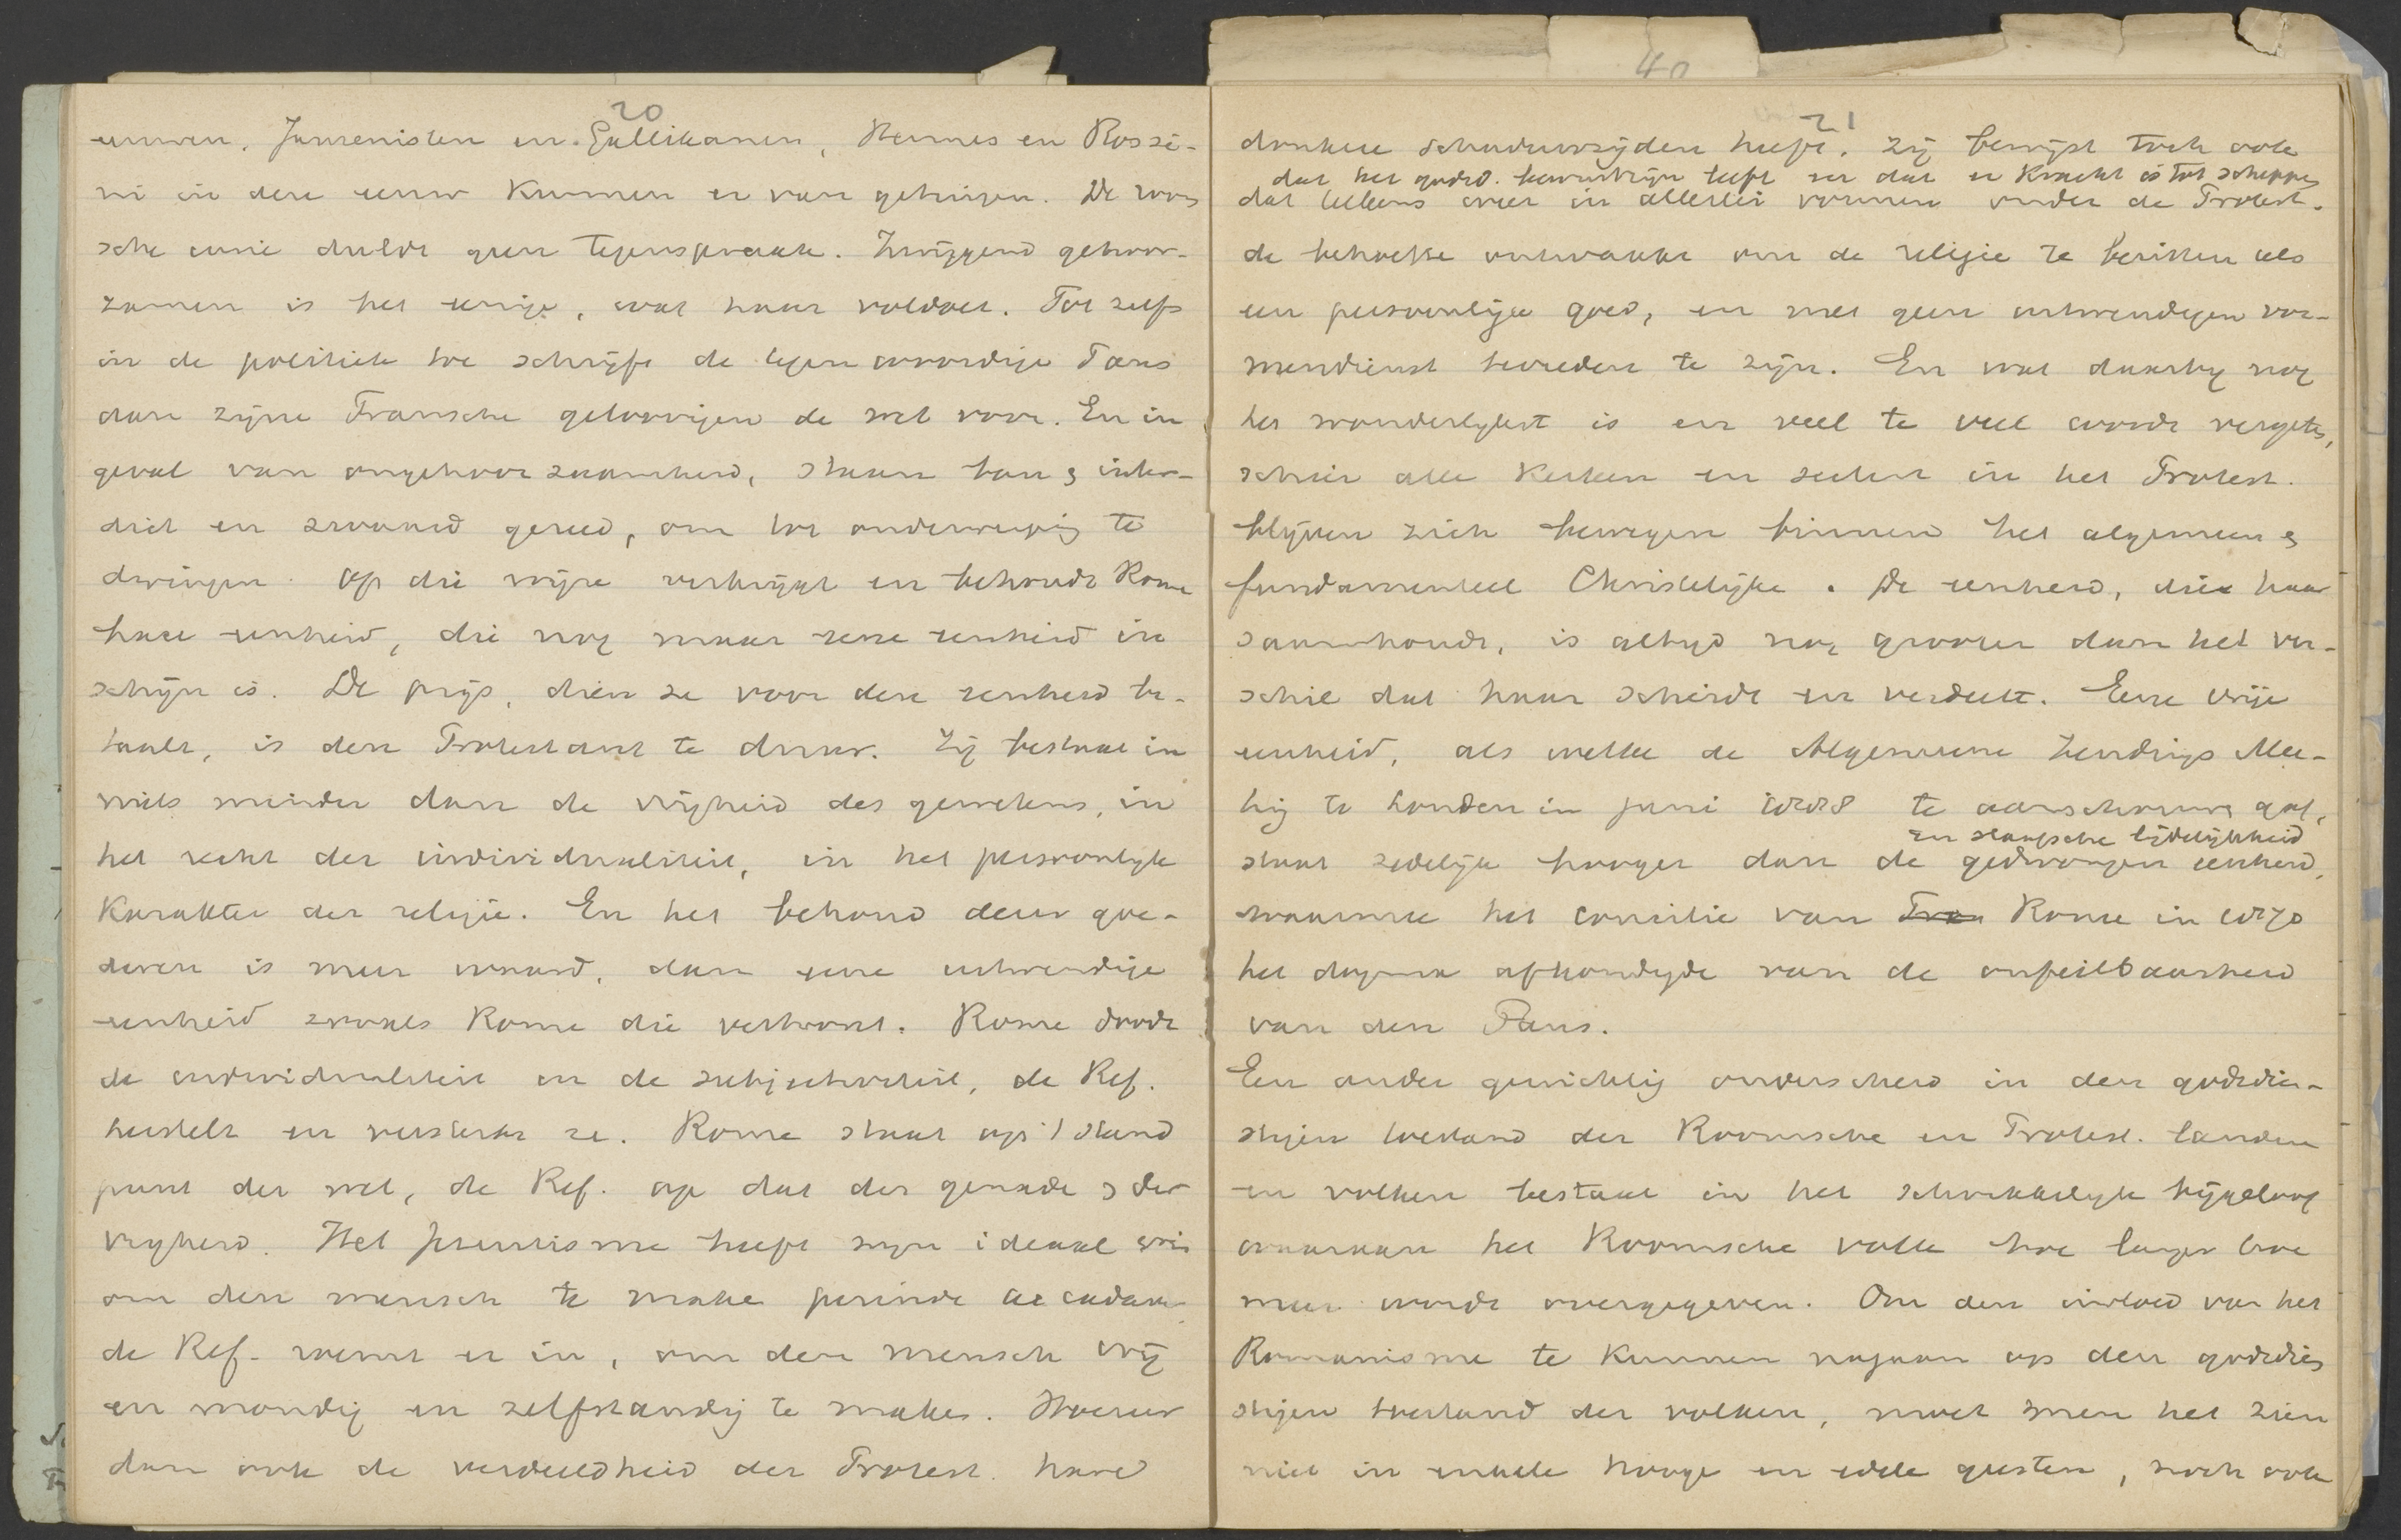 20
eeuwen. Jansenisten en Gallikanen, Hermes en Rossi-
ni in deze eeuw kunnen er van getuigen. De room
sche curie duldt geen tegenspraak. Zwijgend gehoor-
zamen is het eenige, wat haar voldoet. Tot zelfs
in de politiek toe schrijft de tegenwoordige Paus
aan zijne Fransche geloovigen de wet voor. En in
geval van ongehoorzaamheid, staan ban & inter-
dict en zwaard gereed, om tot onderwerping te
dwingen. Op die wijze verkrijgt en behoudt Rome
hare eenheid, die nog maar eene eenheid in
schijn is. De prijs, dien ze voor deze eenheid be-
taalt, is den Protestant te duur. Zij bestaat in
niets minder dan de vrijheid des gewetens, in
het recht der individualiteit, in het persoonlijk
karakter der religie. En het behoud dezer goe-
deren is meer waard, dan eene uitwendige
eenheid zooals Rome die vertoont. Rome doodt
de individualiteit en de subjectiviteit, de Ref.
herstelt en versterkt ze. Rome staat op 't stand
punt der wet, de Ref. op dat der genade & der
vrijheid. Het Jezuitisme heeft zijn ideaal erin
om den mensch te maken perinde ac cadaver
de Ref. roemt er in, om den mensch vrij
en mondig en zelfstandig te maken. Hoezeer
dan ook de verdeeldheid der Protest. hare
40
21
donkere schaduwzijden heeft, zij bewijst toch ook
dat het godsd. bewustzijn leeft en dat er kracht is tot scheppen
dat telkens weer in allerlei vormen onder de Protest.
de behoefte ontwaakt om de religie te bezitten als
een persoonlijk goed, en met geen uitwendigen vor-
mendienst tevreden te zijn. En wat daarbij nog
het wonderlijkst is en veel te veel wordt vergeten,
schier alle kerken en secten in het Protest.
blijven zich bewegen binnen het algemeen &
fundamenteel Christelijke. De eenheid, die haar
saamhoudt, is altijd nog grooter dan het ver-
schil dat haar scheidt en verdeelt. Eene vrije
eenheid, als welke de Algemeene Zendings Mee-
ting te Londen in juni 1888 te aanschouwen gaf,
en slaafsche lijdelijkheid
staat zedelijk hooger dan de gedwongen eenheid,
waarmee het concilie van Tren Rome in 1870
het dogma afkondigde van de onfeilbaarheid
van den Paus.
Een ander gewichtig onderscheid in den godsdien-
stigen toestand der Roomsche en Protest. landen
en volken bestaat in het schrikkelijk bijgeloof
waaraan het Roomsche volk hoe langer hoe
meer wordt overgegeven. Om den invloed van het
Romanisme te kunnen nagaan op den godsdien
stigen toestand der volken, moet men het zien
niet in enkele hooge en edele geesten, noch ook